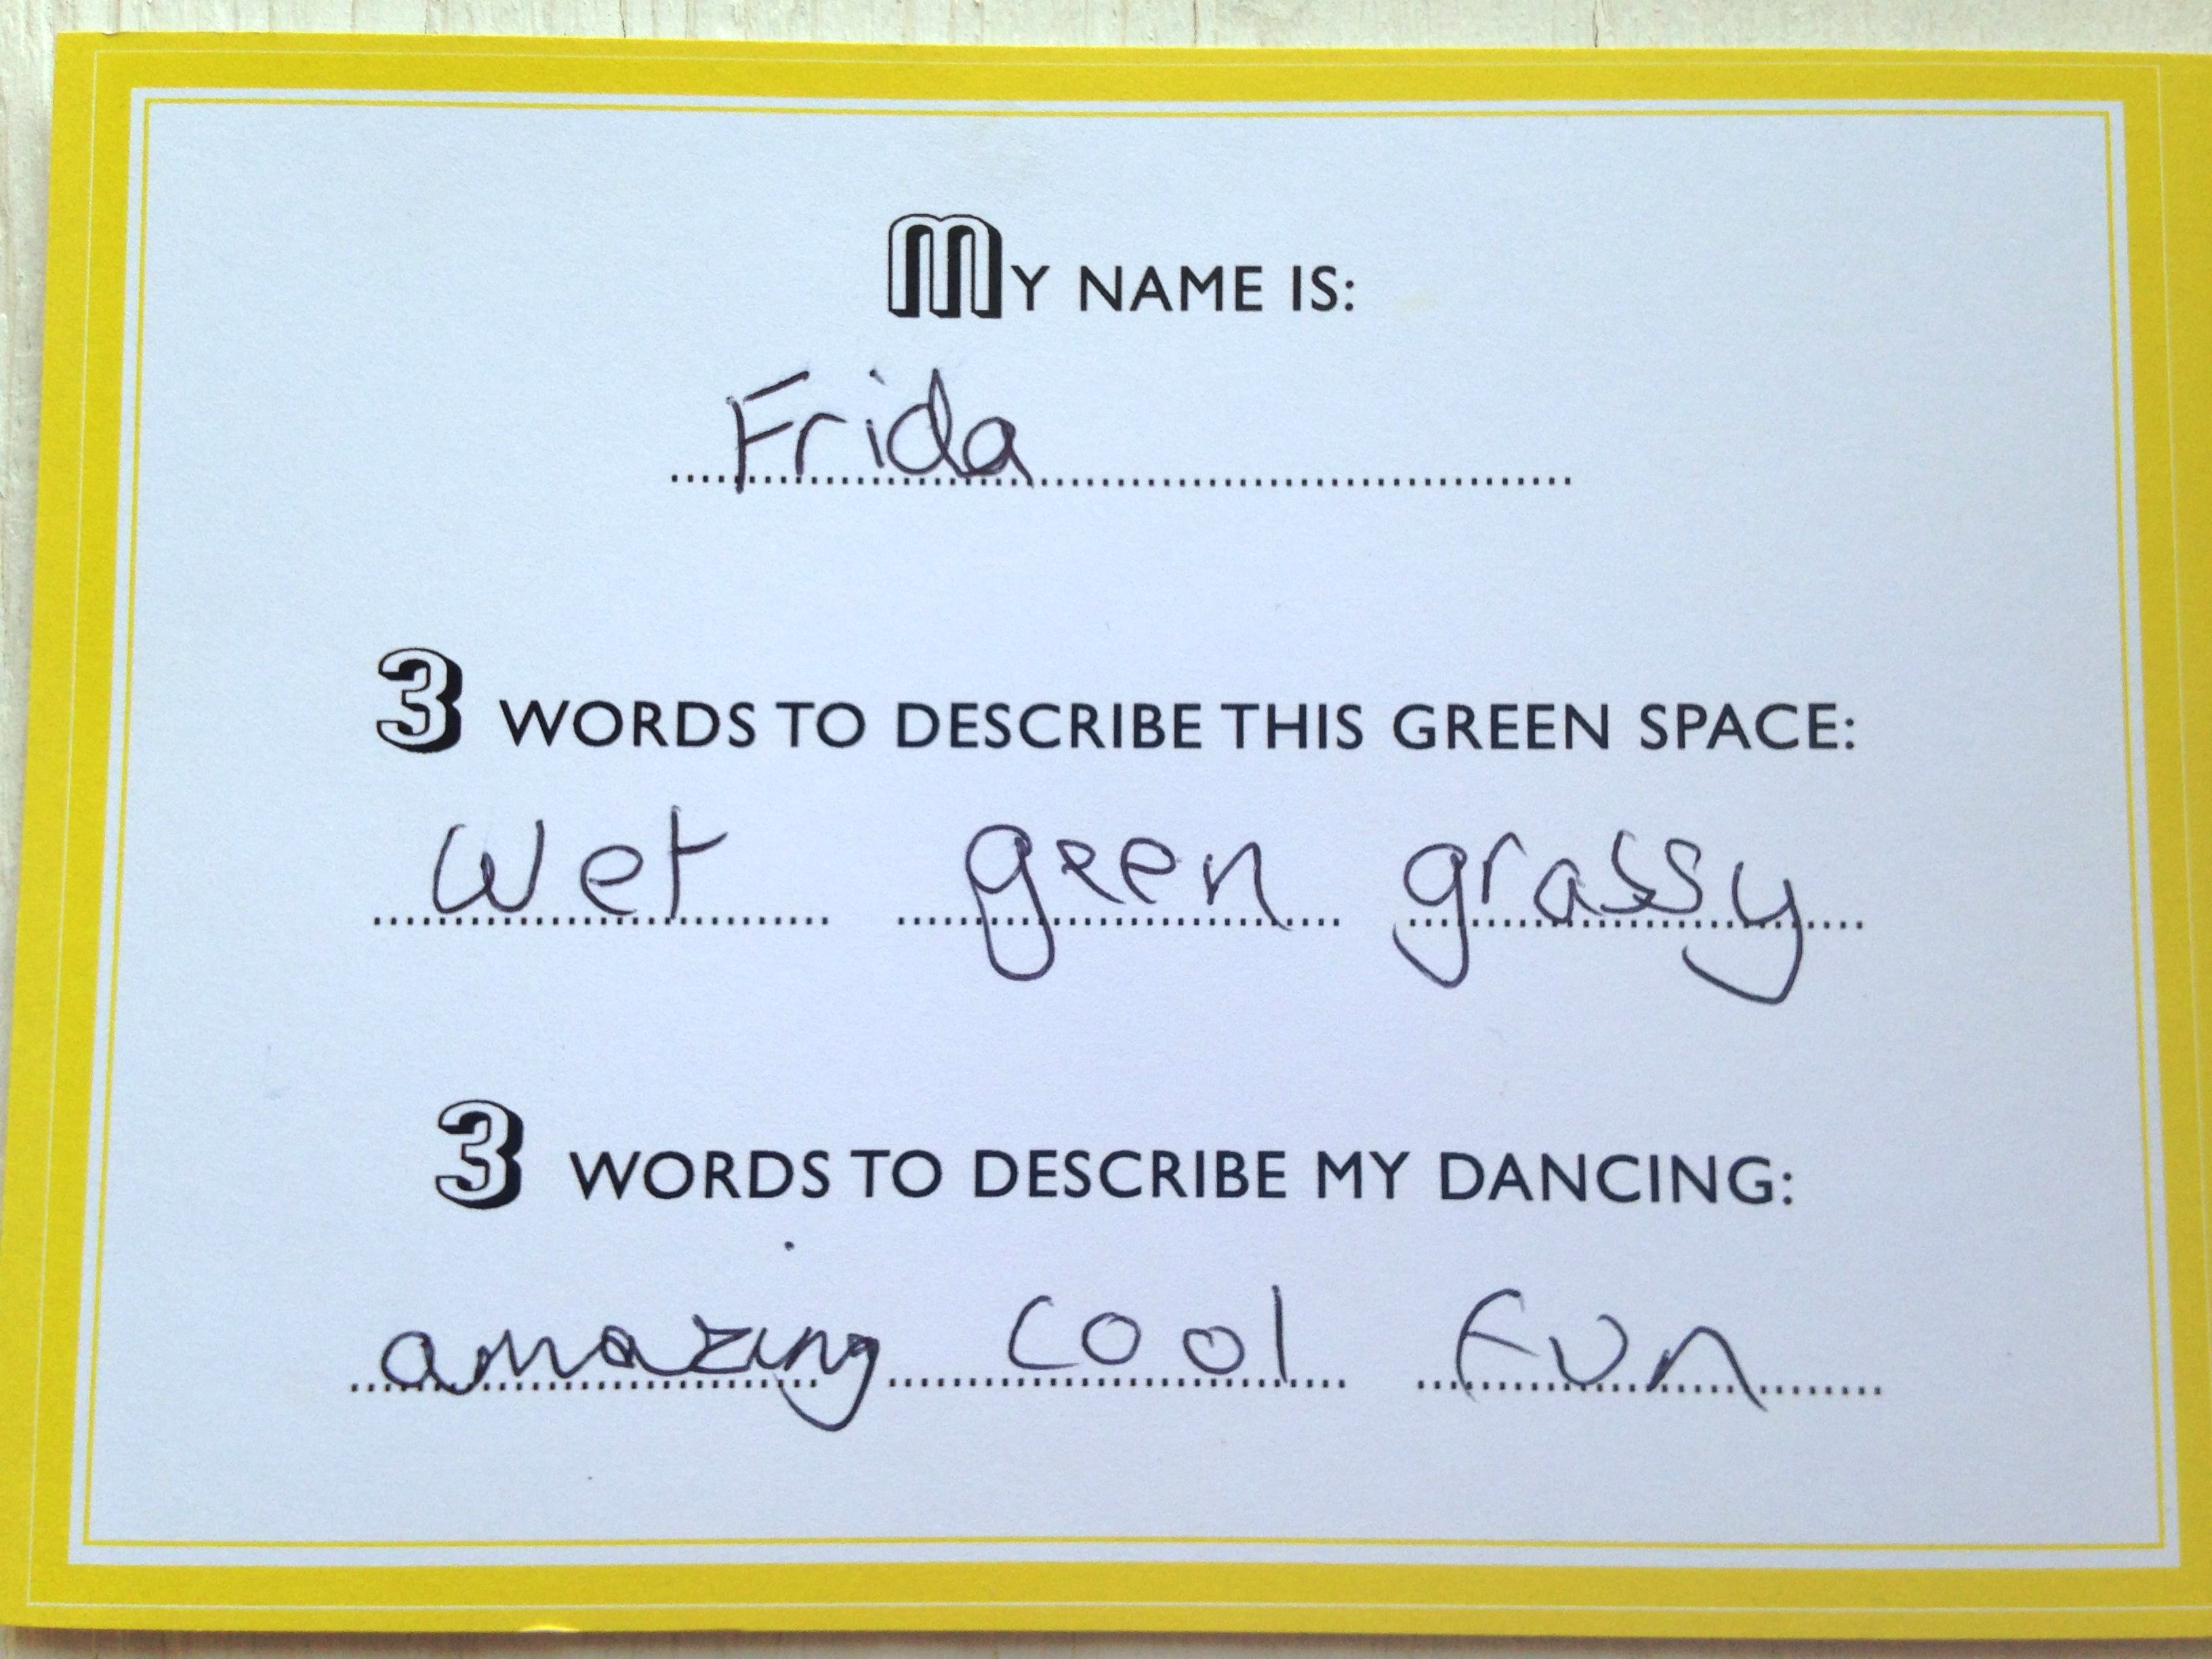 MY NAME IS:
Frida
3 WORDS TO DESCRIBE THIS GREEN SPACE:
Wet geen grassy
3 WORDS TO DESCRIBE MY DANCING:
amazing cool fun